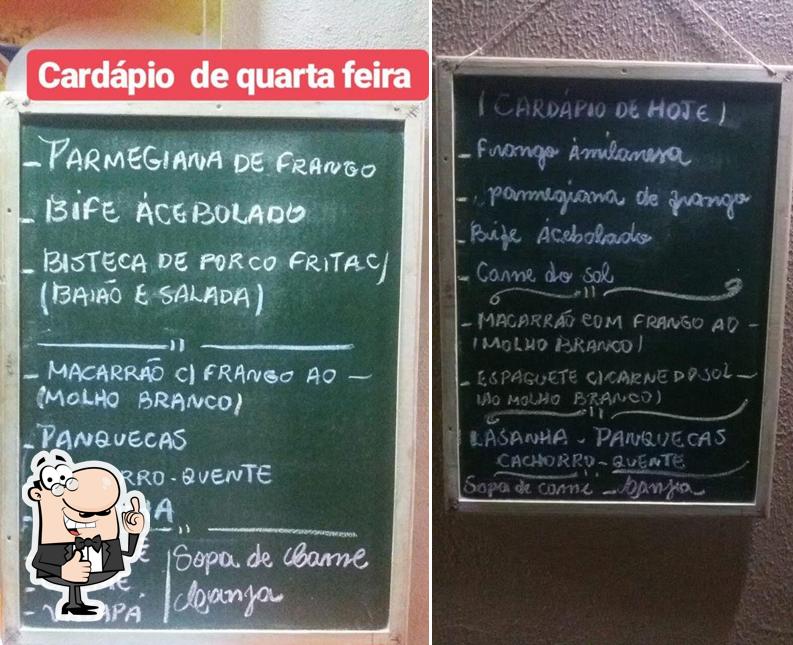 Cardápio de quarta feira
- PARMEGIANA DE FRANGO
- BIFE ÁCEBOLADO
- BISTECA DE PORCO FRITA C/
(BAIÃO E SALADA)
- MACARRÃO C/ FRANGO AO -
(MOLHO BRANCO)
- PANQUECAS
RRO-QUENTE
Sopa de Carne
Canja
(CARDÁPIO DE HOJE)
- Frango ámilanesa
- parmegiana de frango
- Bife Ácebolado
- Carne do sol
- MACARRÃO COM FRANGO AO -
(MOLHO BRANCO)
- ESPAGUETE C/CARNE DO SOL -
(AO MOLHO BRANCO)
LASANHA - PANQUECAS
CACHORRO-QUENTE
Sopa de carne - Canja